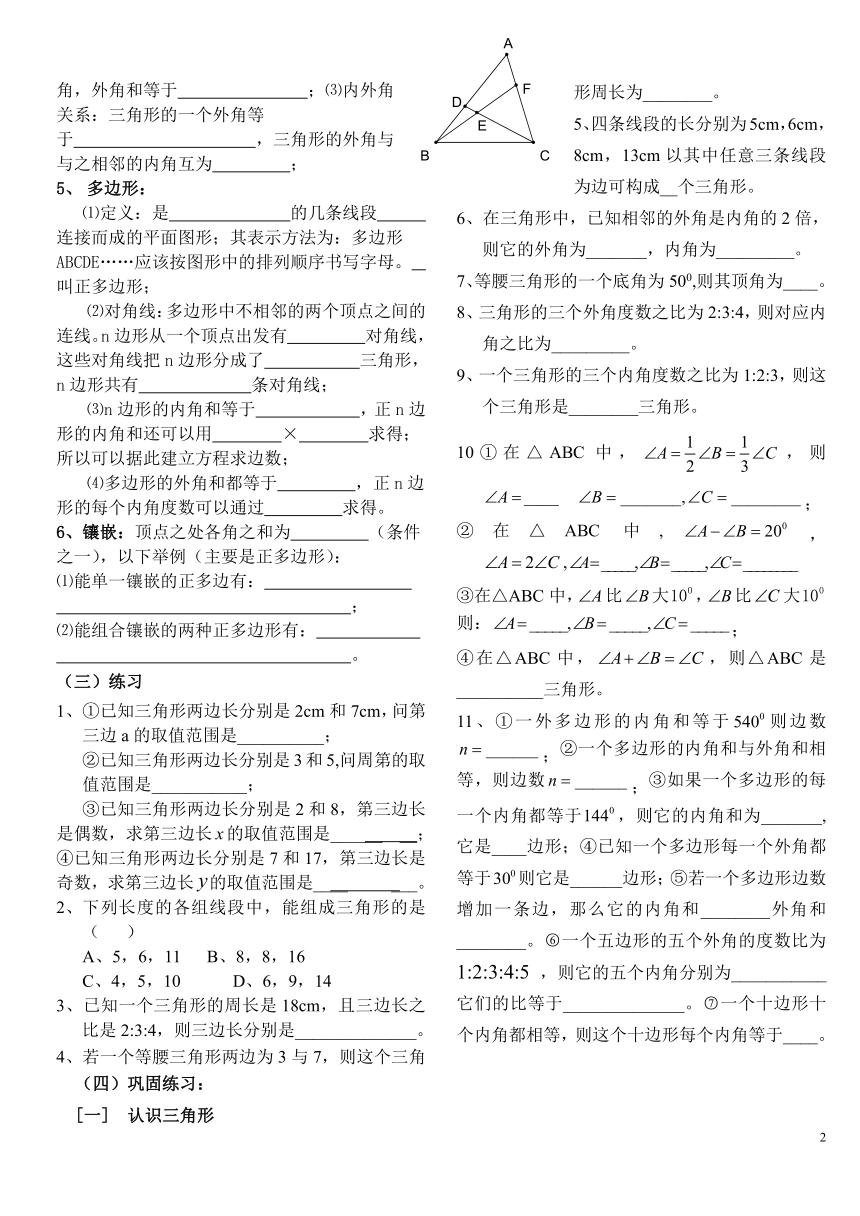 角，外角和等于_______________；⑶内外角
关系：三角形的一个外角等
于_____________________，三角形的外角与
与之相邻的内角互为_________；
5、 多边形：
⑴定义：是______________的几条线段______
连接而成的平面图形；其表示方法为：多边形
ABCDE……应该按图形中的排列顺序书写字母。__
叫正多边形；
⑵对角线：多边形中不相邻的两个顶点之间的
连线。n边形从一个顶点出发有_________对角线，
这些对角线把 n 边形分成了___________三角形，
n 边形共有_____________条对角线；
⑶n 边形的内角和等于____________，正 n 边
形的内角和还可以用________×________求得；
所以可以据此建立方程求边数；
⑷多边形的外角和都等于_________，正 n 边
形的每个内角度数可以通过_________求得。
6、镶嵌：顶点之处各角之和为_________（条件
之一），以下举例（主要是正多边形）：
⑴能单一镶嵌的正多边有：_________________
__________________________________；
⑵能组合镶嵌的两种正多边形有：____________
__________________________________。
（三）练习
1、①已知三角形两边长分别是 2cm 和 7cm，问第
三边 a 的取值范围是__________；
②已知三角形两边长分别是 3 和 5,问周第的取
值范围是___________；
③已知三角形两边长分别是 2 和 8，第三边长
是偶数，求第三边长 x 的取值范围是__________；
④已知三角形两边长分别是 7 和 17，第三边长是
奇数，求第三边长 y 的取值范围是____________。
2、下列长度的各组线段中，能组成三角形的是
（ ）
A、5，6，11 B、8，8，16
C、4，5，10 D、6，9，14
3、已知一个三角形的周长是 18cm，且三边长之
比是 2:3:4，则三边长分别是______________。
4、若一个等腰三角形两边为 3 与 7，则这个三角
（四）巩固练习：
[一] 认识三角形
A
F
D
E
B C
形周长为________。
5、四条线段的长分别为5cm,6cm,
8cm，13cm 以其中任意三条线段
为边可构成__个三角形。
6、在三角形中，已知相邻的外角是内角的 2 倍，
则它的外角为_______，内角为_________。
7、等腰三角形的一个底角为 50⁰,则其顶角为____。
8、三角形的三个外角度数之比为 2:3:4，则对应内
角之比为_________。
9、一个三角形的三个内角度数之比为 1:2:3，则这
个三角形是________三角形。
10 ① 在 △ ABC 中 ， ∠A=1/2∠B=1/3∠C ， 则
∠A=____ ∠B=_______,∠C=________；
② 在 △ ABC 中 , ∠A−∠B=20⁰ ，
∠A=2∠C ,∠A=_____,∠B=_____,∠C=________
③在△ABC 中，∠A比∠B大10⁰,∠B比∠C大10⁰
则：∠A=_____,∠B=_____,∠C=_____；
④在△ABC 中，∠A+∠B=∠C，则△ABC 是
__________三角形。
11、①一外多边形的内角和等于 540⁰ 则边数
n=______；②一个多边形的内角和与外角和相
等，则边数 n=______；③如果一个多边形的每
一个内角都等于144⁰，则它的内角和为_______,
它是____边形；④已知一个多边形每一个外角都
等于30⁰则它是______边形；⑤若一个多边形边数
增加一条边，那么它的内角和________外角和
________。⑥一个五边形的五个外角的度数比为
1:2:3:4:5 ，则它的五个内角分别为___________
它们的比等于______________。⑦一个十边形十
个内角都相等，则这个十边形每个内角等于____。
2